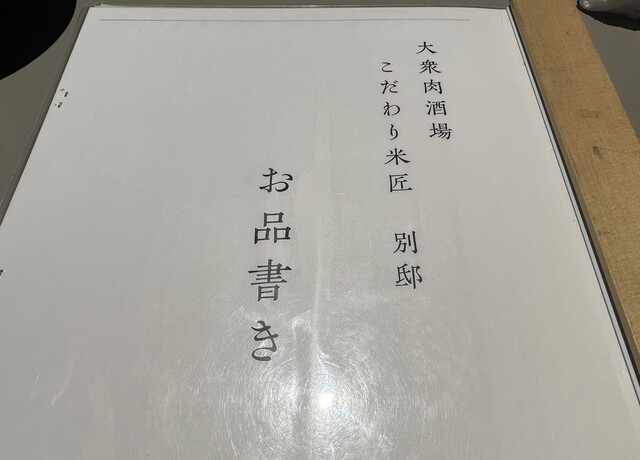 大衆肉酒場
こだわり米匠 別邸
お品書き